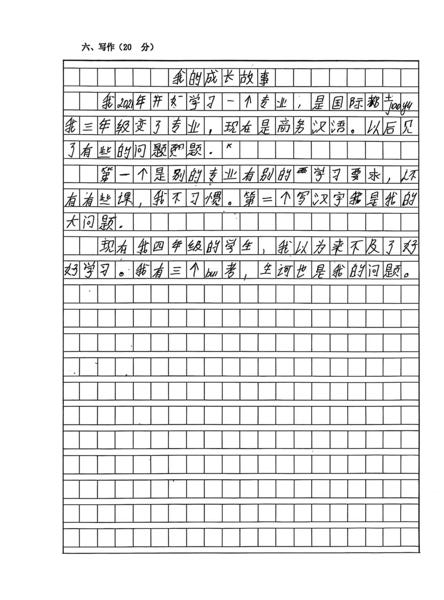 六、写作(20 分)
我的成长故事
我2021年开始学习一个专业,是国际
我三年级变了专业,现在是商务汉语。以后见
了有些的问题题.
第一个是别的专业有别的学习要求,还
有有些课,我不习惯。第二个写汉字是我的
大问题.
现在我四年级的学生,我以为来不及了好
好学习。我有三个bu考,生词也是我的问题。